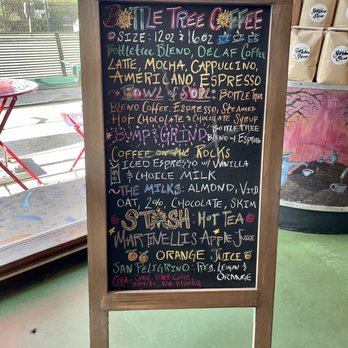 BOTTLE TREE COFFEE
SIZE: 12oz & 16oz
Bottletree Blend, Decaf Coffee
Latte, Mocha, Cappuccino,
Americano, Espresso
Bowl of Soul: Bottle Tree
Blend Coffee, Espresso, Steamed
Hot Chocolate & Chocolate Syrup
Bump & Grind: Bottle Tree
Blend w/ Espresso
Coffee on the Rocks
Iced Espresso w/ Vanilla
& Choice Milk
The Milks: Almond,
Oat, 2%, Chocolate, Skim
STASH Hot Tea
Martinellis Apple Juice
Orange Juice
San Peligrino: Reg, Lemon &
Orange